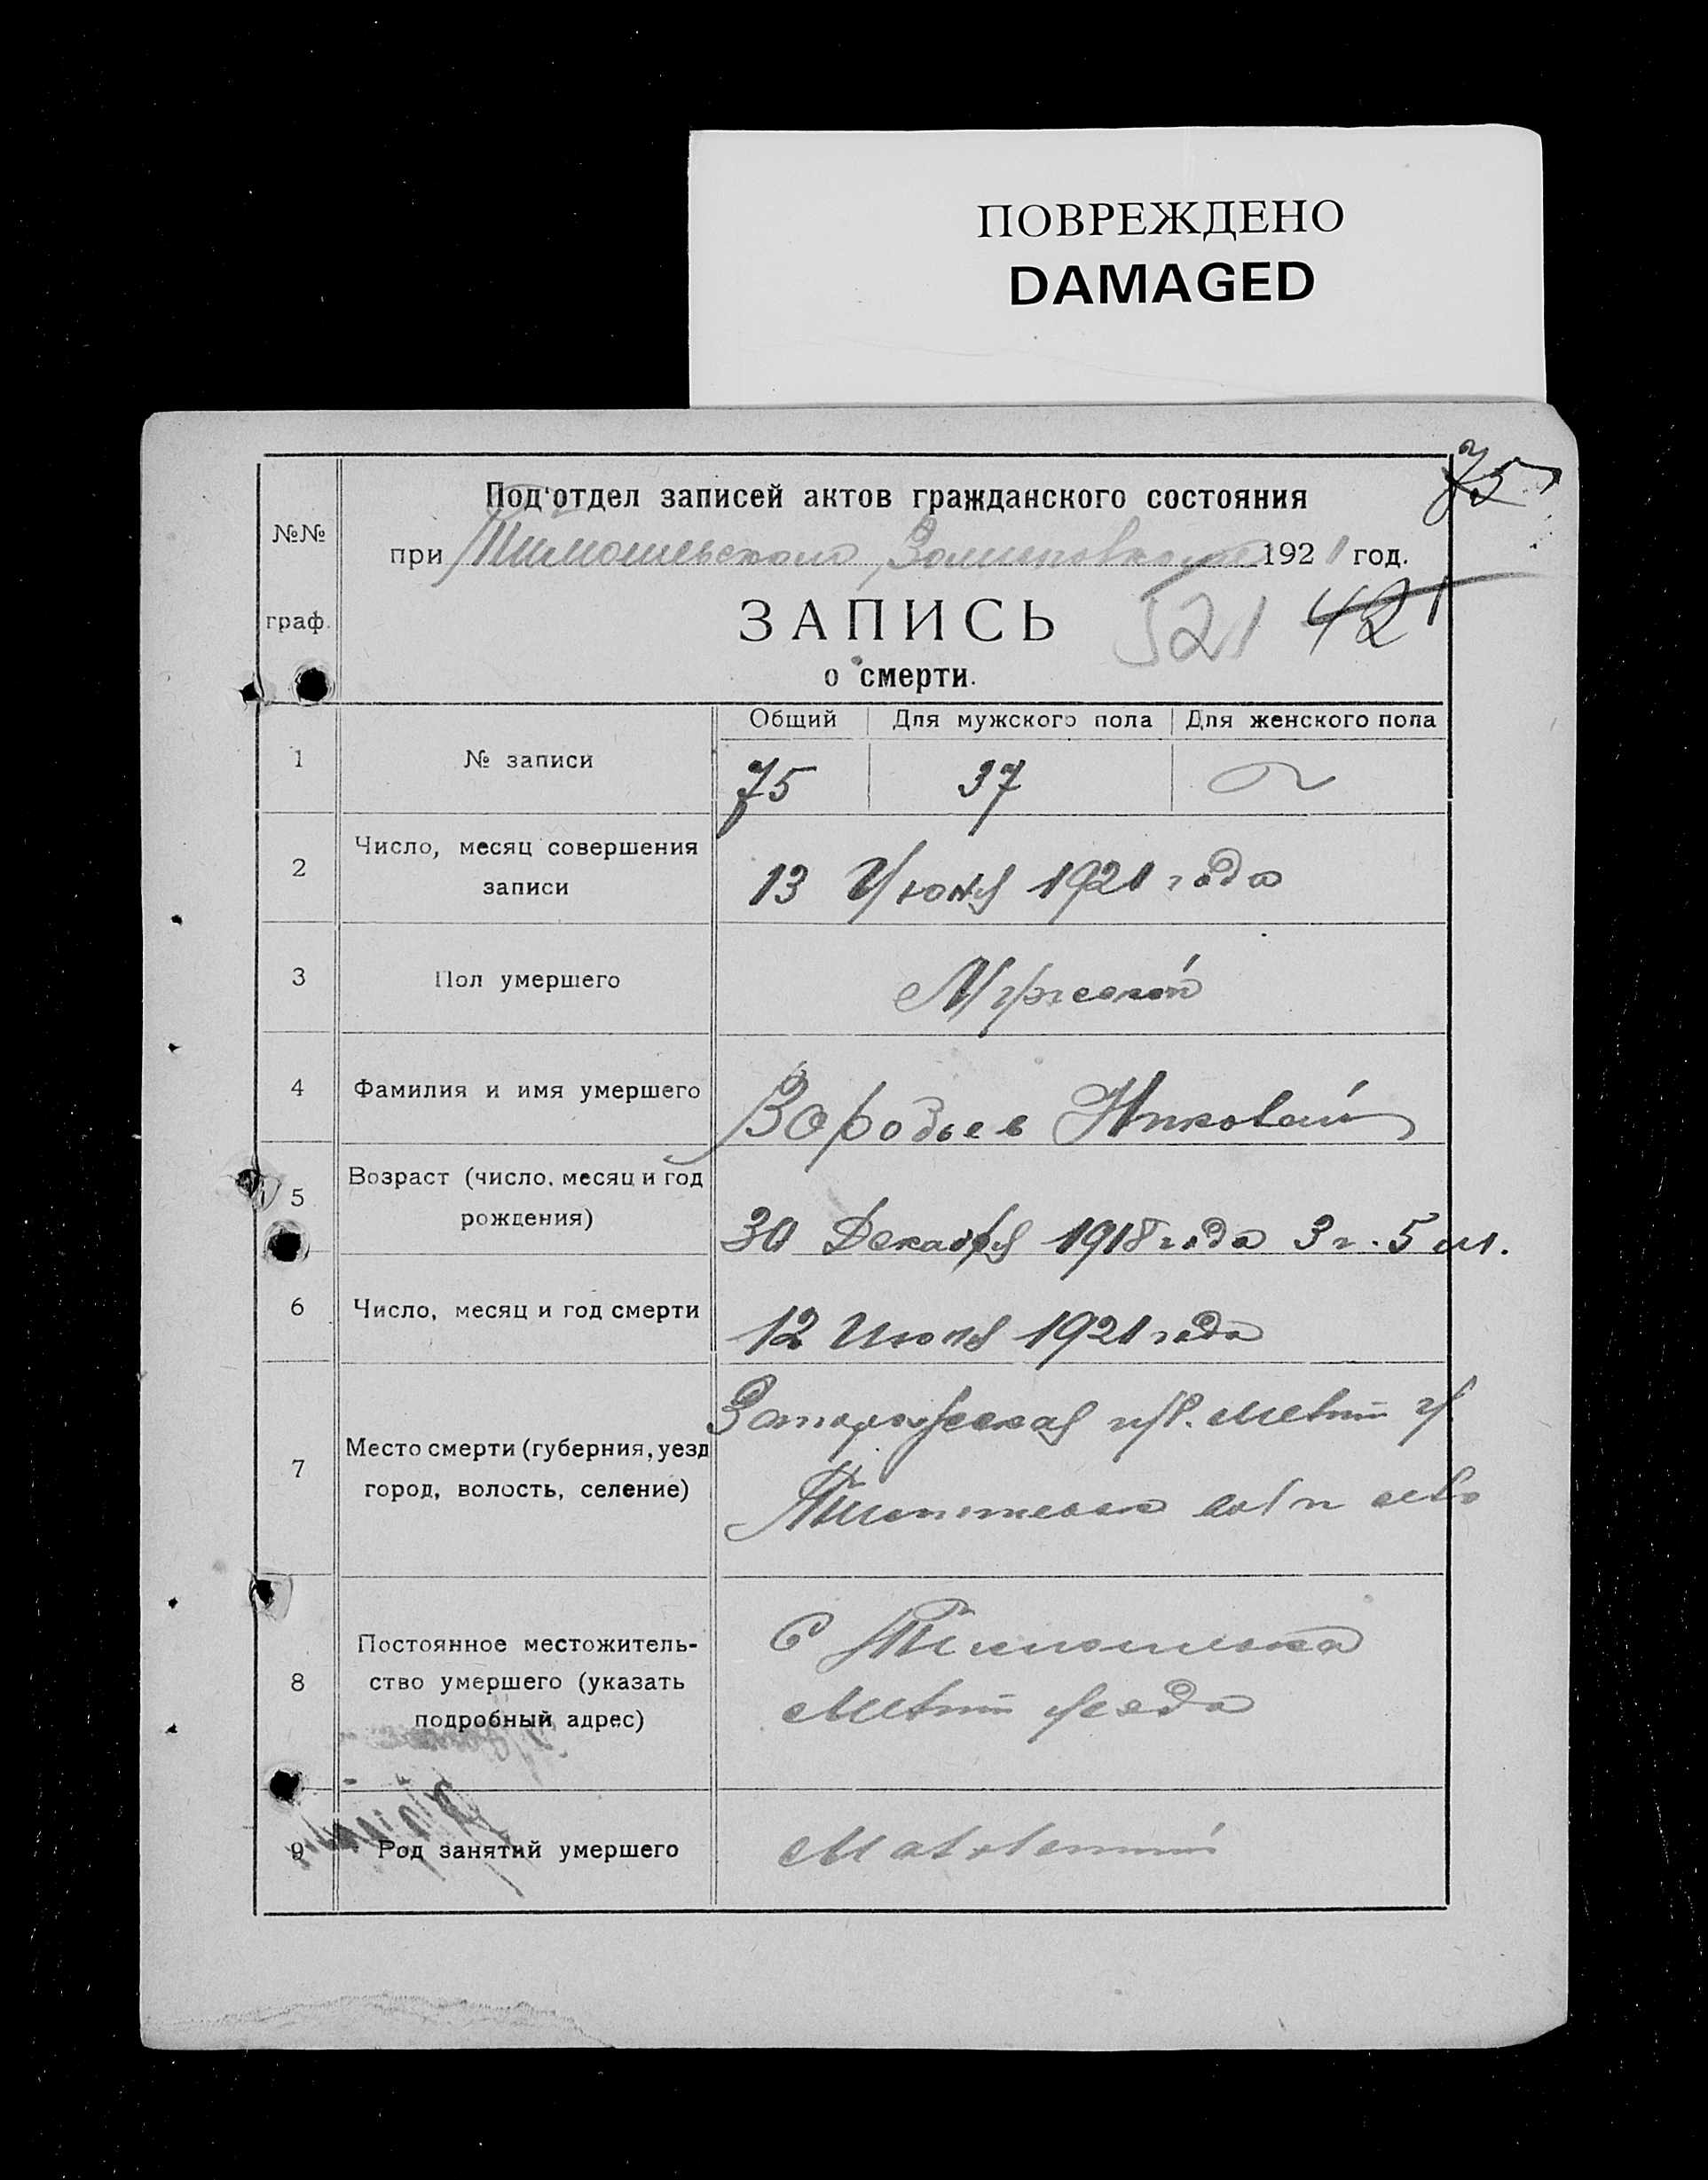 ПОВРЕЖДЕНО
DAMAGED
75
№№
граф.
Под'отдел записей актов гражданского состояния
при Тимошевском 1921 год.
ЗАПИСЬ 521 421
о смерти.
Общий Для мужского пола Для женского пола
1 № записи 75 37 ~
2 Число, месяц совершения
записи
13 Июня 1921 года
3 Пол умершего Мужской
4 Фамилия и имя умершего Воробьев Николай
5 Возраст (число, месяц и год
рождения)
30 Декабря 1918 года 3 г. 5 м.
6 Число, месяц и год смерти 12 Июня 1921 года
7 Место смерти (губерния, уезд
город, волость, селение)
Запорожская губ. Мелит у.
8 Постоянное местожитель-
ство умершего (указать
подробный адрес)
С Тимошевка
Мелит уезда
9 Род занятий умершего Малолетний